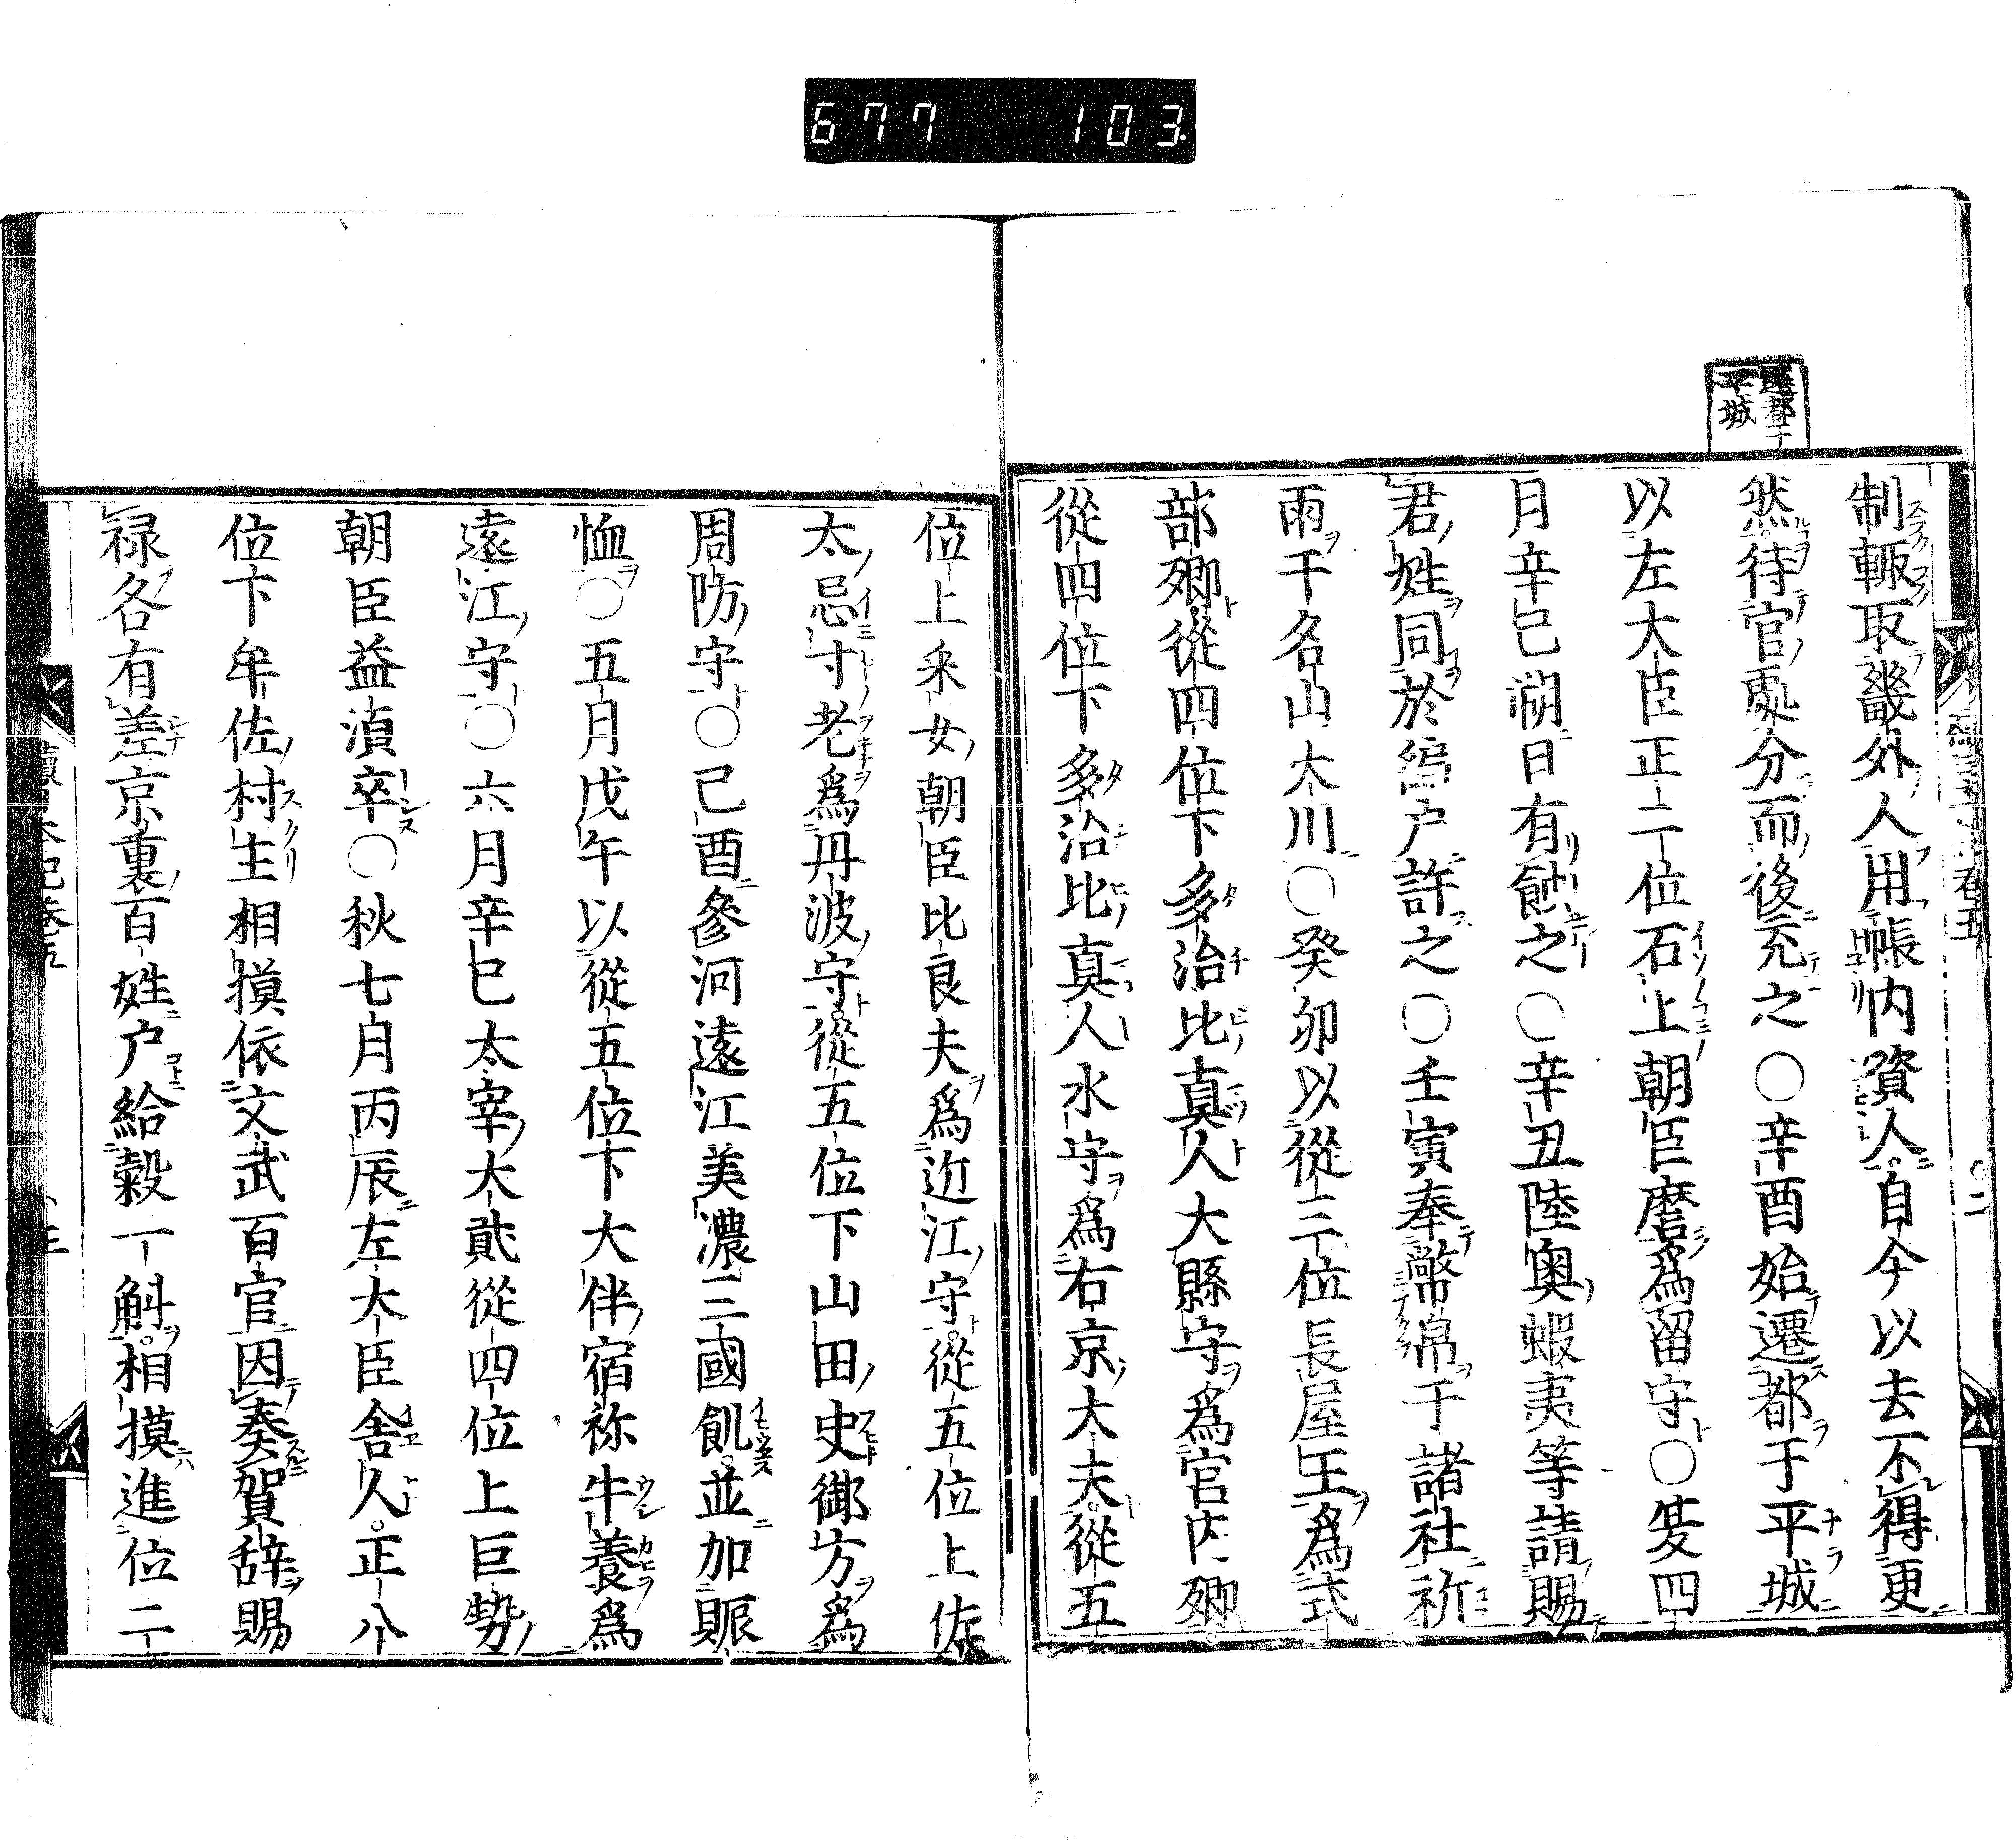 677 103
遷都于
平城
制輙取畿外人用帳内資人自今以去不得更
然待官處分而後充之○辛酉始遷都于平城
以左大臣正二位石上朝臣麿爲留守○夏四
月辛巳朔日有蝕之○辛丑陸奥蝦夷等請賜
君姓同於編户許之○壬寅奉幣帛于諸社祈
雨于名山大川○癸卯以從三位長屋王爲式
部卿從四位下多治比真人大縣守爲宮内卿
從四位下多治比真人水守爲右京大夫從五
位上采女朝臣比良夫爲近江守從五位上佐
太忌寸老爲丹波守從五位下山田史御方爲
周防守○己酉參河遠江美濃三國飢並加賑
恤○五月戊午以從五位下大伴宿祢牛養爲
遠江守○六月辛巳太宰大貳從四位上巨勢
朝臣益湏卒○秋七月丙辰左大臣舎人正八
位下牟佐村主相摸依文武百官因奏賀辞賜
禄各有差京裏百姓户給穀一斛相摸進位二
續日本紀卷五 三